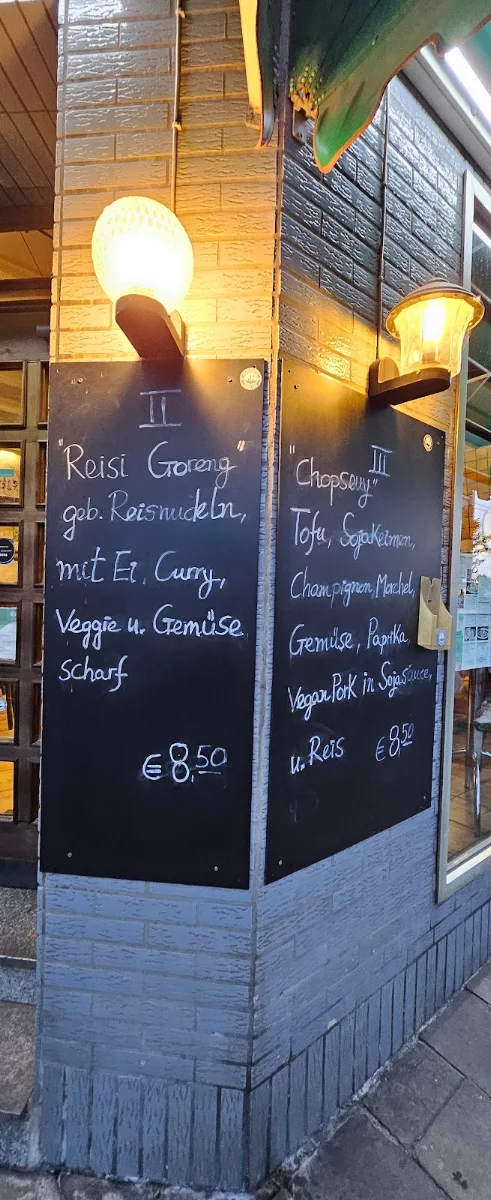 II
"Reisi Goreng"
geb. Reisnudeln,
mit Ei, Curry,
Veggie u. Gemüse
scharf
€ 8,50
III
"Chopseuy"
Tofu, Sojakeimen,
Champignon, Morchel,
Gemüse, Paprika,
Vegan Pork in Sojasauce,
u. Reis € 8,50